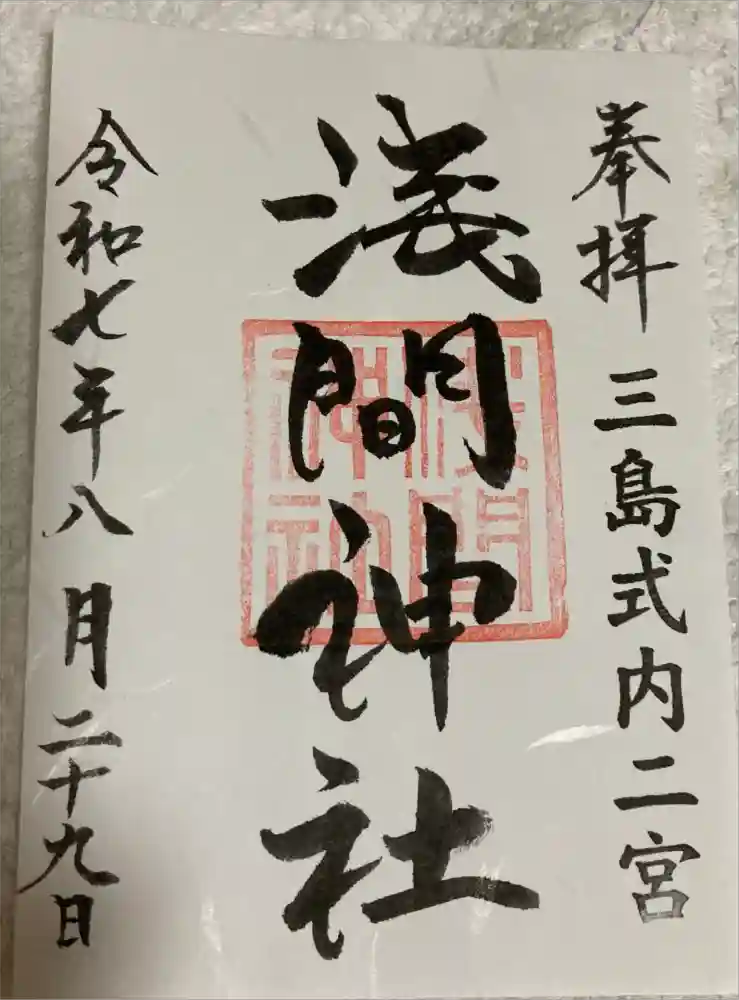 奉拝 三島式内二宮
浅間神社
浅間
神社
令和七年八月二十九日